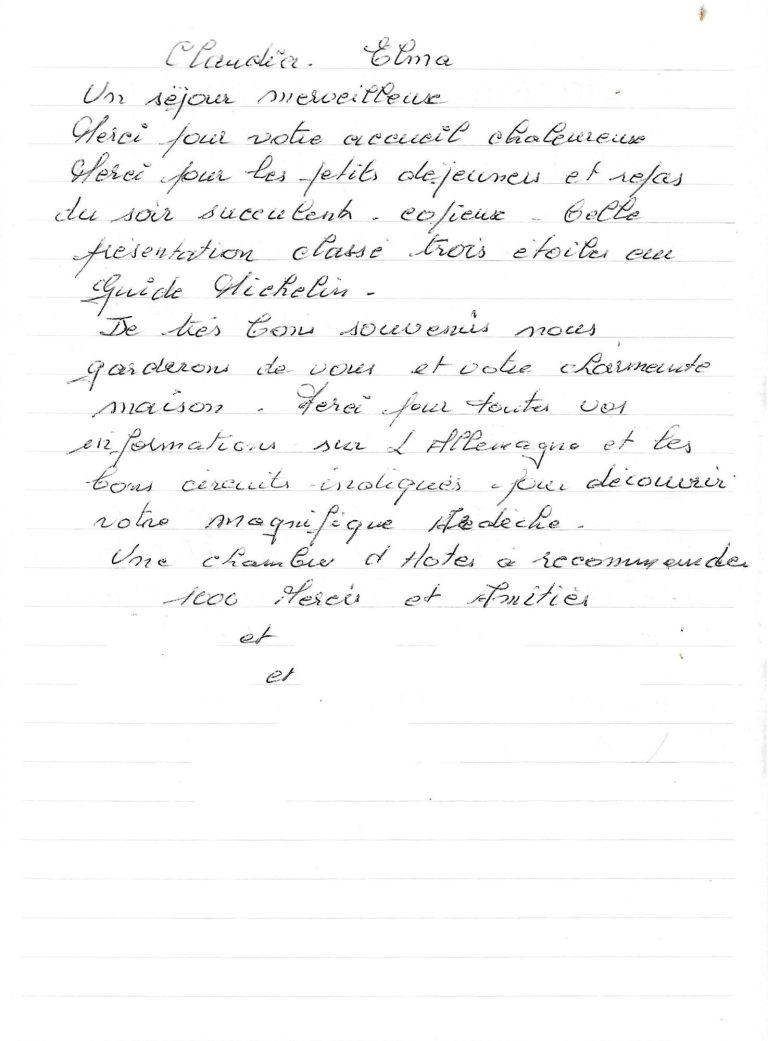 Claudia. Elma
Un séjour merveilleux
Merci pour votre accueil chaleureux
Merci pour les petits déjeuners et repas
du soir succulents - copieux - belle
présentation classé trois étoiles au
Guide Michelin -
De très bons souvenirs nous
garderons de vous et votre charmante
maison. Merci pour toutes vos
informations sur L'Allemagne et les
bons circuits indiqués pour découvrir
votre magnifique Ardèche.
Une chambre d'Hotes a recommander
1000 Mercis et Amitiés
et
et